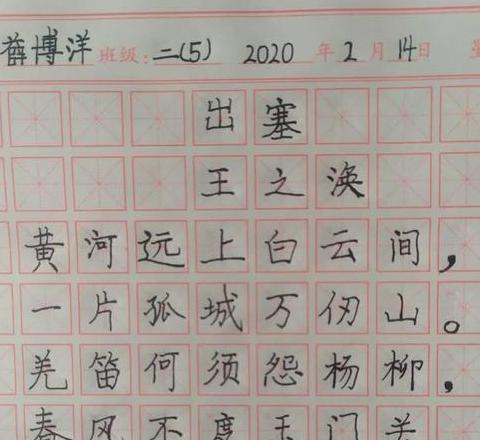 薛博洋 班级:二(5) 2020年2月14日
出塞
王之涣
黄河远上白云间,
一片孤城万仞山。
羌笛何须怨杨柳,
春风不度玉门关